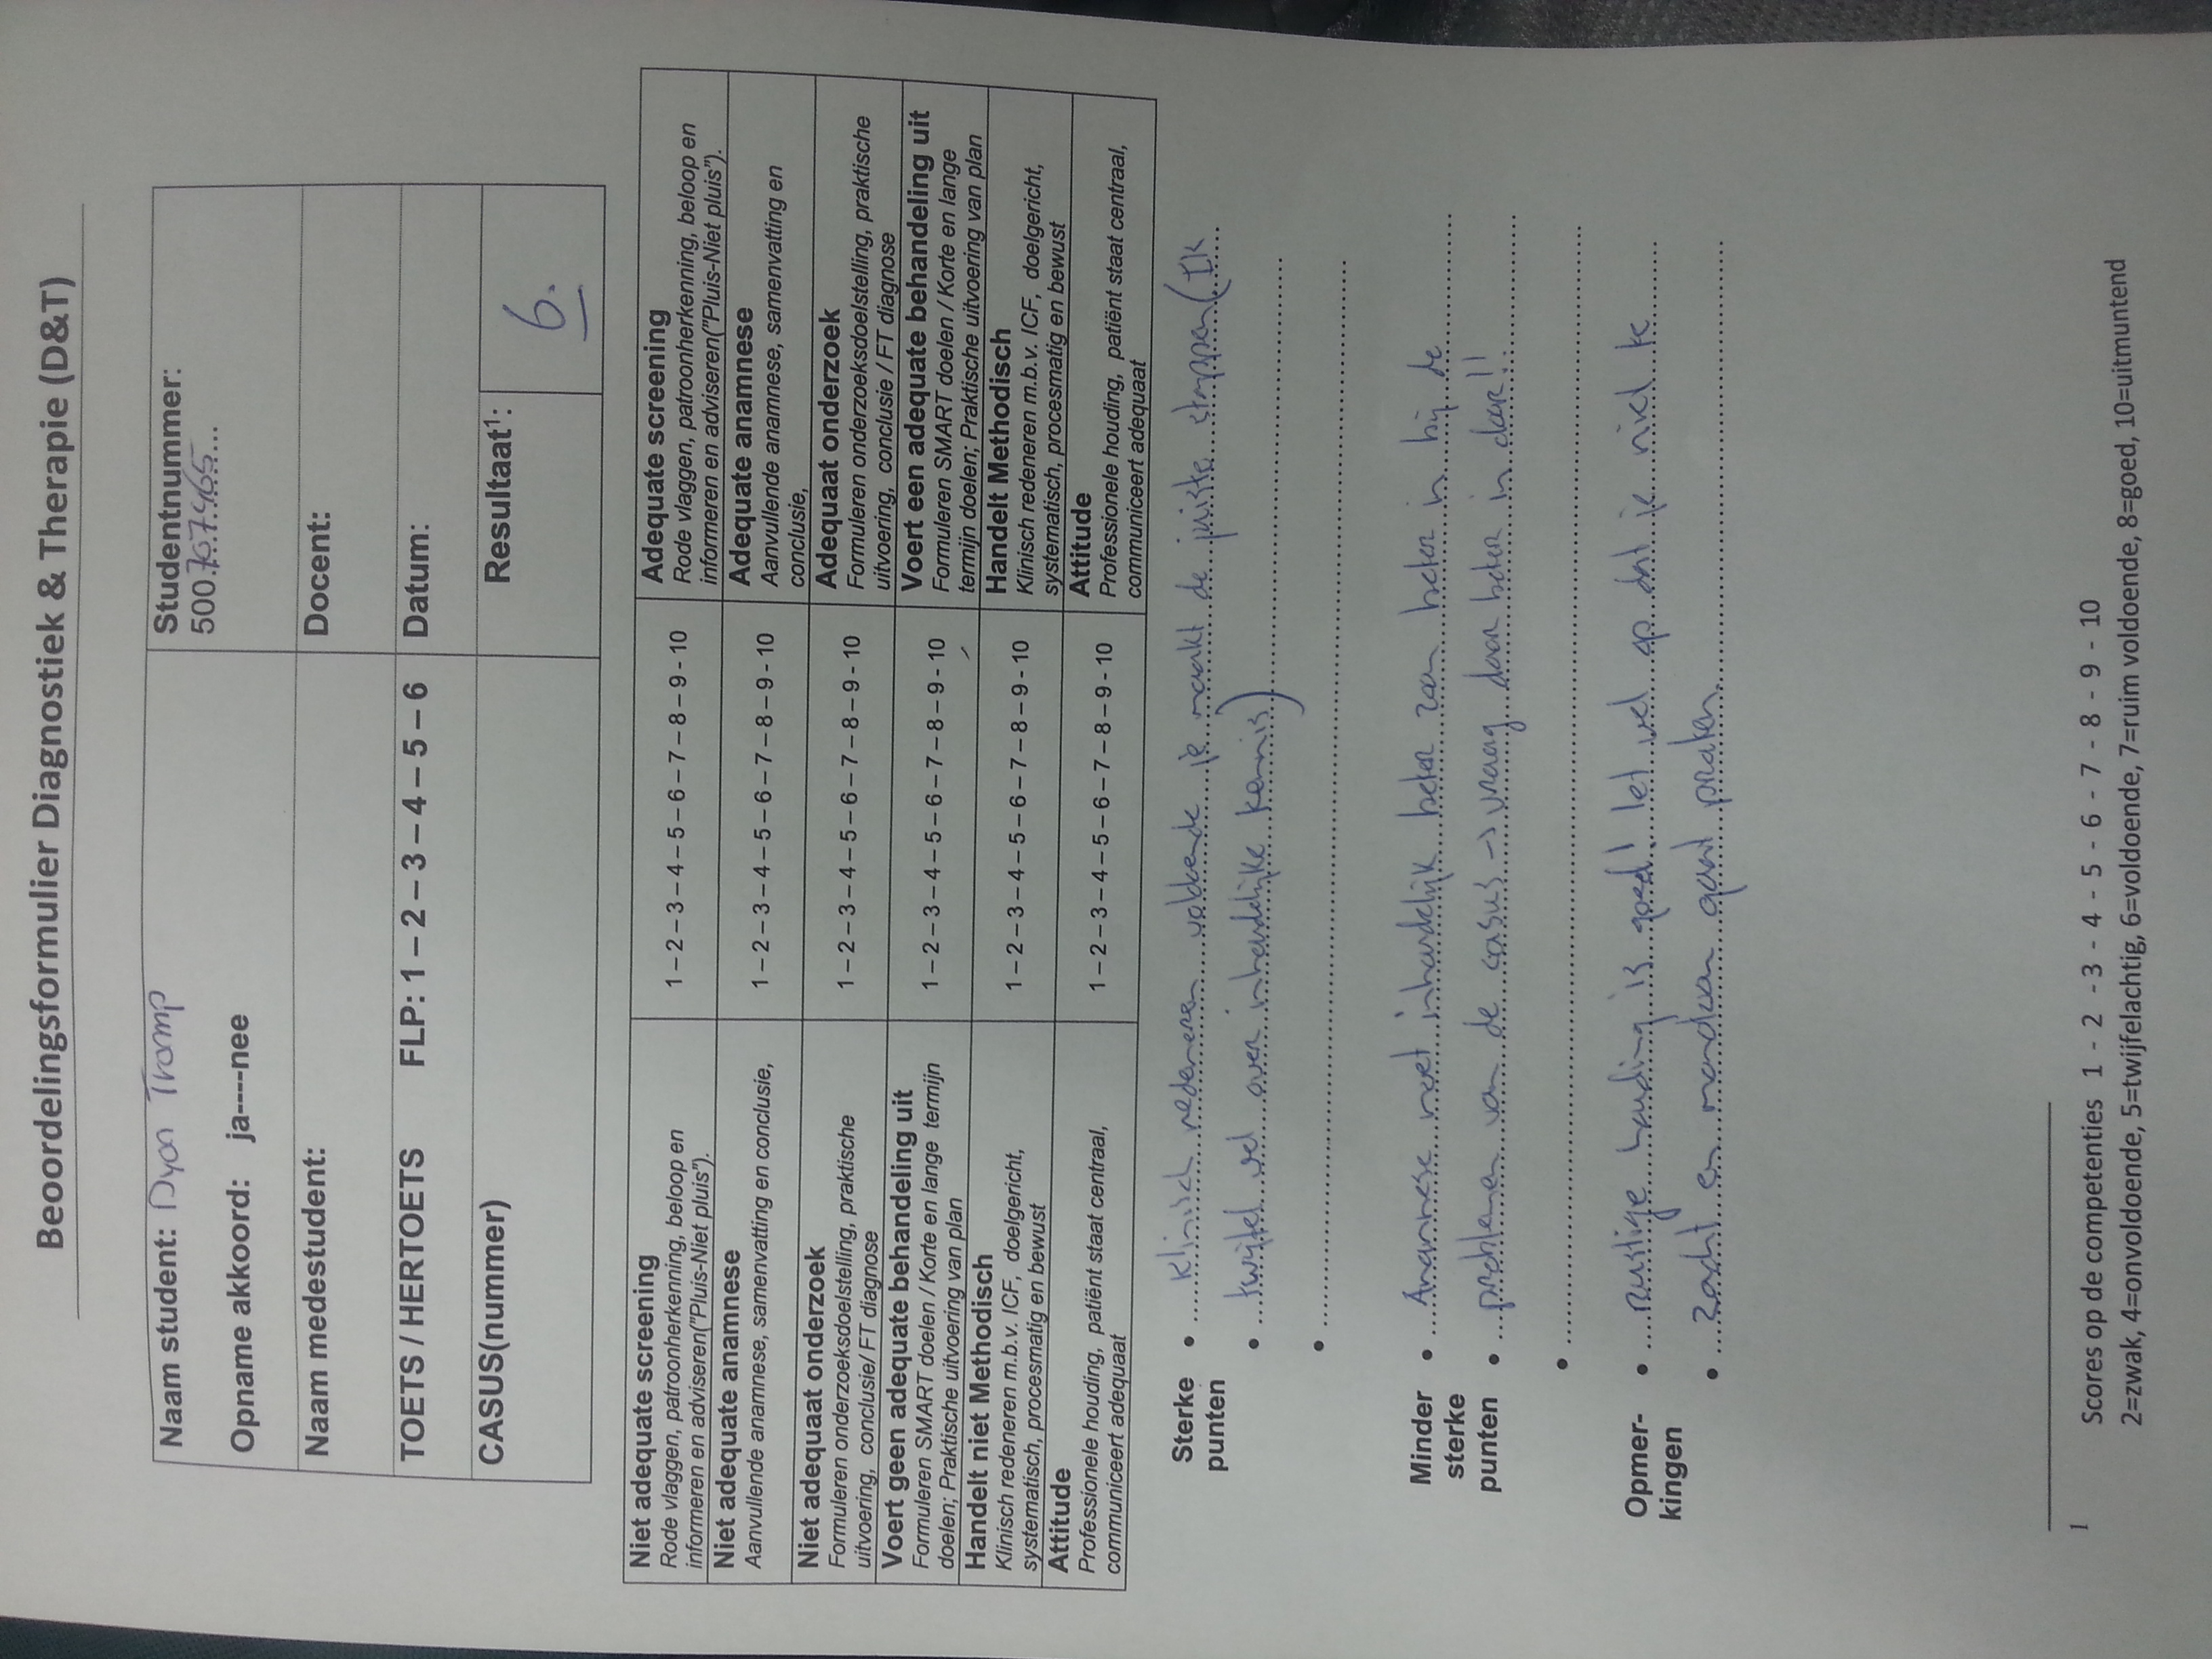 Beoordelingsformulier Diagnostiek & Therapie (D&T)
Naam student: Dyon Tromp
Opname akkoord: ja----nee
Studentnummer:
500.707465...
Naam medestudent:
Docent:
TOETS / HERTOETS FLP: 1 – 2 – 3 – 4 – 5 – 6
Datum:
CASUS(nummer)
Resultaat1:
6.
Niet adequate screening
Rode vlaggen, patroonherkenning, beloop en
informeren en adviseren("Pluis-Niet pluis").
1 – 2 – 3 – 4 – 5 – 6 – 7 – 8 – 9 - 10
Adequate screening
Rode vlaggen, patroonherkenning, beloop en
informeren en adviseren("Pluis-Niet pluis").
Niet adequate anamnese
Aanvullende anamnese, samenvatting en conclusie,
1 – 2 – 3 – 4 – 5 – 6 – 7 – 8 – 9 - 10
Adequate anamnese
Aanvullende anamnese, samenvatting en
conclusie,
Niet adequaat onderzoek
Formuleren onderzoeksdoelstelling, praktische
uitvoering, conclusie/ FT diagnose
1 – 2 – 3 – 4 – 5 – 6 – 7 – 8 – 9 - 10
Adequaat onderzoek
Formuleren onderzoeksdoelstelling, praktische
uitvoering, conclusie / FT diagnose
Voert geen adequate behandeling uit
Formuleren SMART doelen / Korte en lange termijn
doelen; Praktische uitvoering van plan
1 – 2 – 3 – 4 – 5 – 6 – 7 – 8 – 9 - 10
Voert een adequate behandeling uit
Formuleren SMART doelen / Korte en lange
termijn doelen; Praktische uitvoering van plan
Handelt niet Methodisch
Klinisch redeneren m.b.v. ICF, doelgericht,
systematisch, procesmatig en bewust
1 – 2 – 3 – 4 – 5 – 6 – 7 – 8 – 9 - 10
Handelt Methodisch
Klinisch redeneren m.b.v. ICF, doelgericht,
systematisch, procesmatig en bewust
Attitude
Professionele houding, patiënt staat centraal,
communiceert adequaat
1 – 2 – 3 – 4 – 5 – 6 – 7 – 8 – 9 - 10
Attitude
Professionele houding, patiënt staat centraal,
communiceert adequaat
Sterke punten
• Klinisch redeneren voldoende je maakt de juiste stappen (Ik
• twijfel wel over inhoudelijke kennis)
•
Minder sterke punten
• Anamnese moet inhoudelijk beter zoom beter in bij de
• problemen van de casus -> vraag daar beter in door!!
•
Opmerkingen
• rustige houding is goed! let wel op dat je niet te
• zacht en monotoon gaat praten
1 Scores op de competenties 1 - 2 - 3 - 4 - 5 - 6 - 7 - 8 - 9 - 10
2=zwak, 4=onvoldoende, 5=twijfelachtig, 6=voldoende, 7=ruim voldoende, 8=goed, 10=uitmuntend